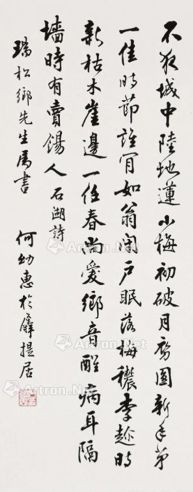 不夜城中陸地蓮小梅初破月初圓新年第
一佳時節誰肎如翁閉戶眠落梅穠李趁時
新枯木崖邊一任春尚愛鄉音醒病耳隔
墻時有賣餳人 石湖詩
瑞松鄉先生屬書 何幼惠於 居
Artron.Net